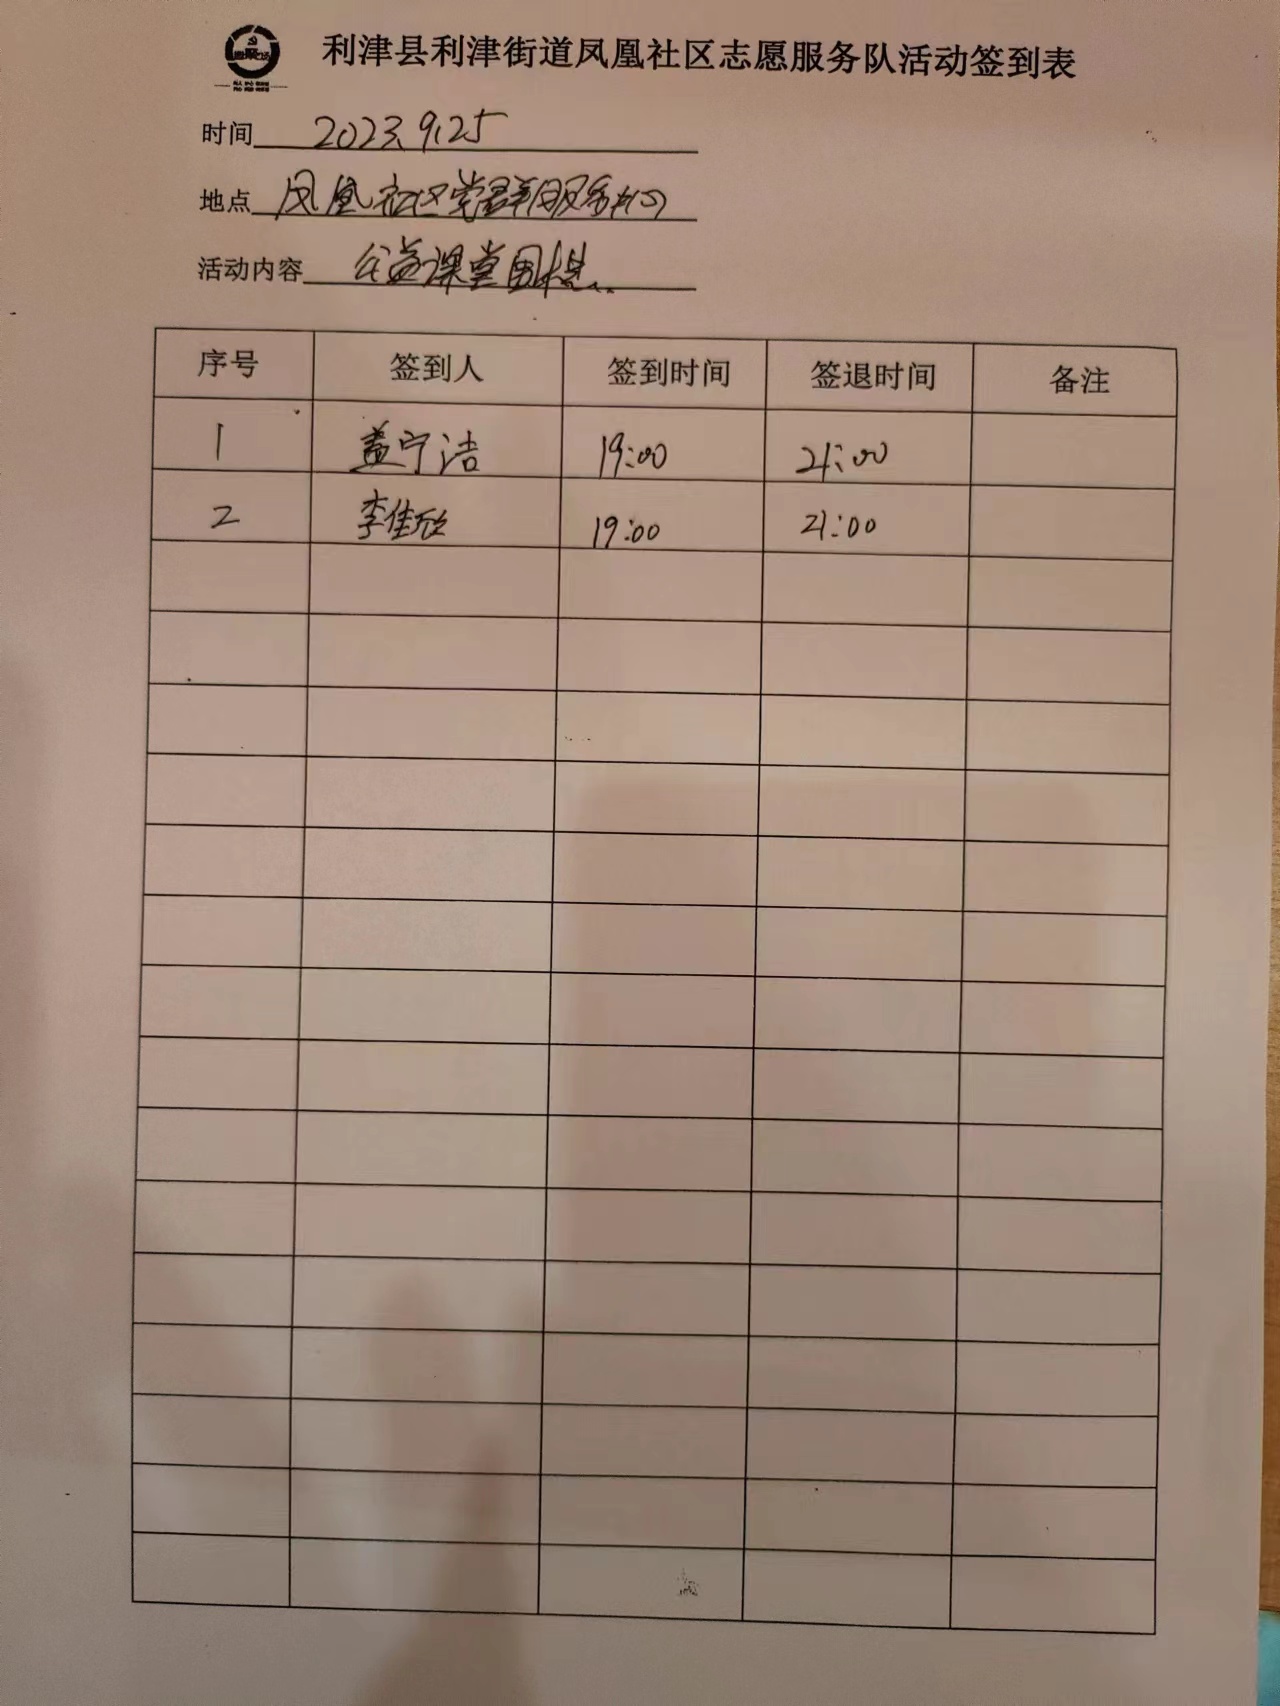 利津县利津街道凤凰社区志愿服务队活动签到表
时间 2023.9.25
地点 凤凰社区党群服务中心
活动内容 公益课堂围棋
序号 签到人 签到时间 签退时间 备注
1 盖宁洁 19:00 21:00
2 李佳欣 19:00 21:00